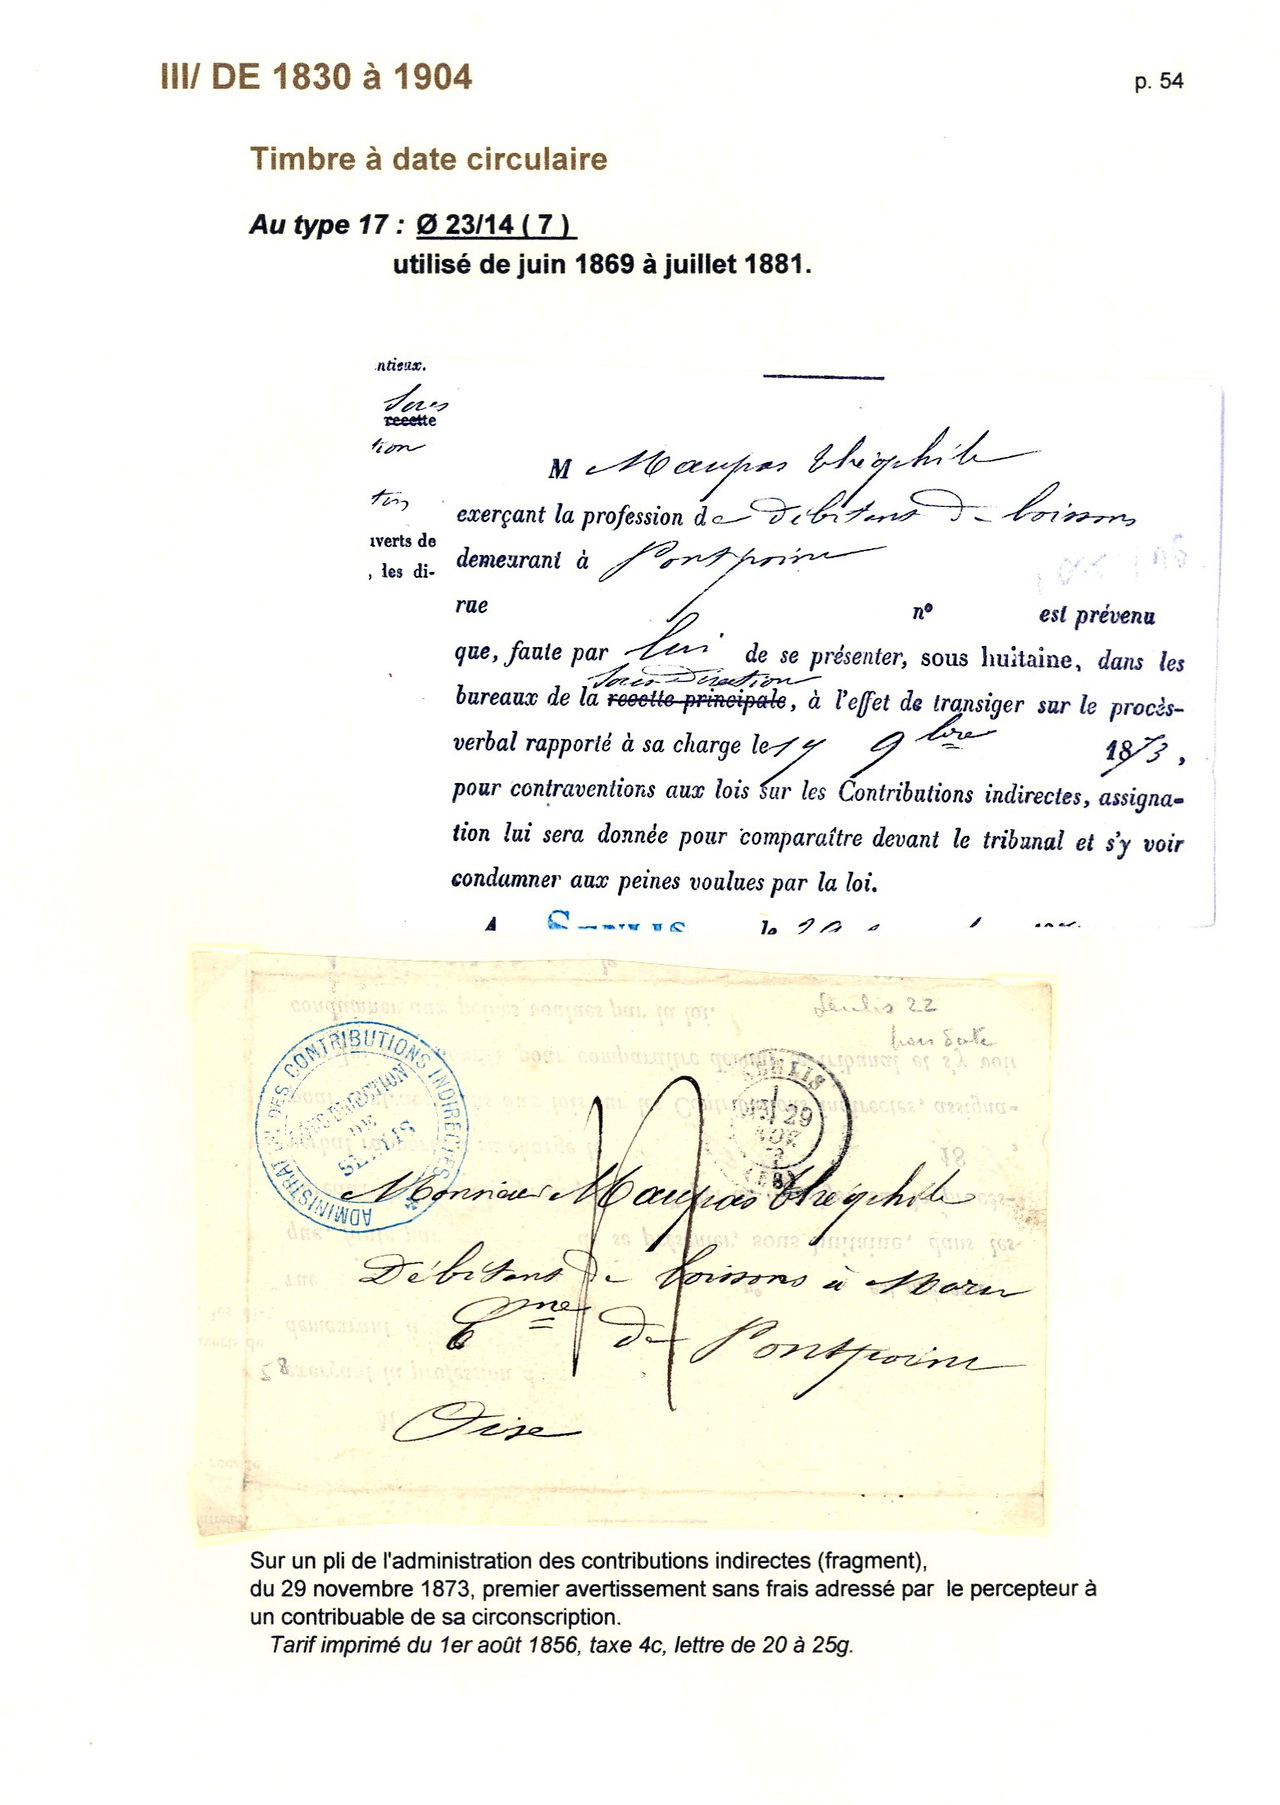 III/ DE 1830 à 1904
p. 54
Timbre à date circulaire
Au type 17 : Ø 23/14 ( 7 )
utilisé de juin 1869 à juillet 1881.
ntieux.
Sous
recette
tion
verts de
, les di-
M Maupas théophile
exerçant la profession de Débitant de boissons
demeurant à Pontpoint
rue nº est prévenu
que, faute par lui de se présenter, sous huitaine, dans les
Sous Direction
bureaux de la recette principale, à l'effet de transiger sur le procès-
verbal rapporté à sa charge le 17 9bre 1873,
pour contraventions aux lois sur les Contributions indirectes, assigna-
tion lui sera donnée pour comparaître devant le tribunal et s'y voir
condamner aux peines voulues par la loi.
A SENLIS le
Senlis 22
hors date
ADMINISTRAT DES CONTRIBUTIONS INDIRECTES
SOUS DIRECTION
DE
SENLIS
SENLIS
29
NOV
Monsieur Maupas théophile
Débitant de boissons à Moru
Cne de Pontpoint
28
Oise
Sur un pli de l'administration des contributions indirectes (fragment),
du 29 novembre 1873, premier avertissement sans frais adressé par le percepteur à
un contribuable de sa circonscription.
Tarif imprimé du 1er août 1856, taxe 4c, lettre de 20 à 25g.